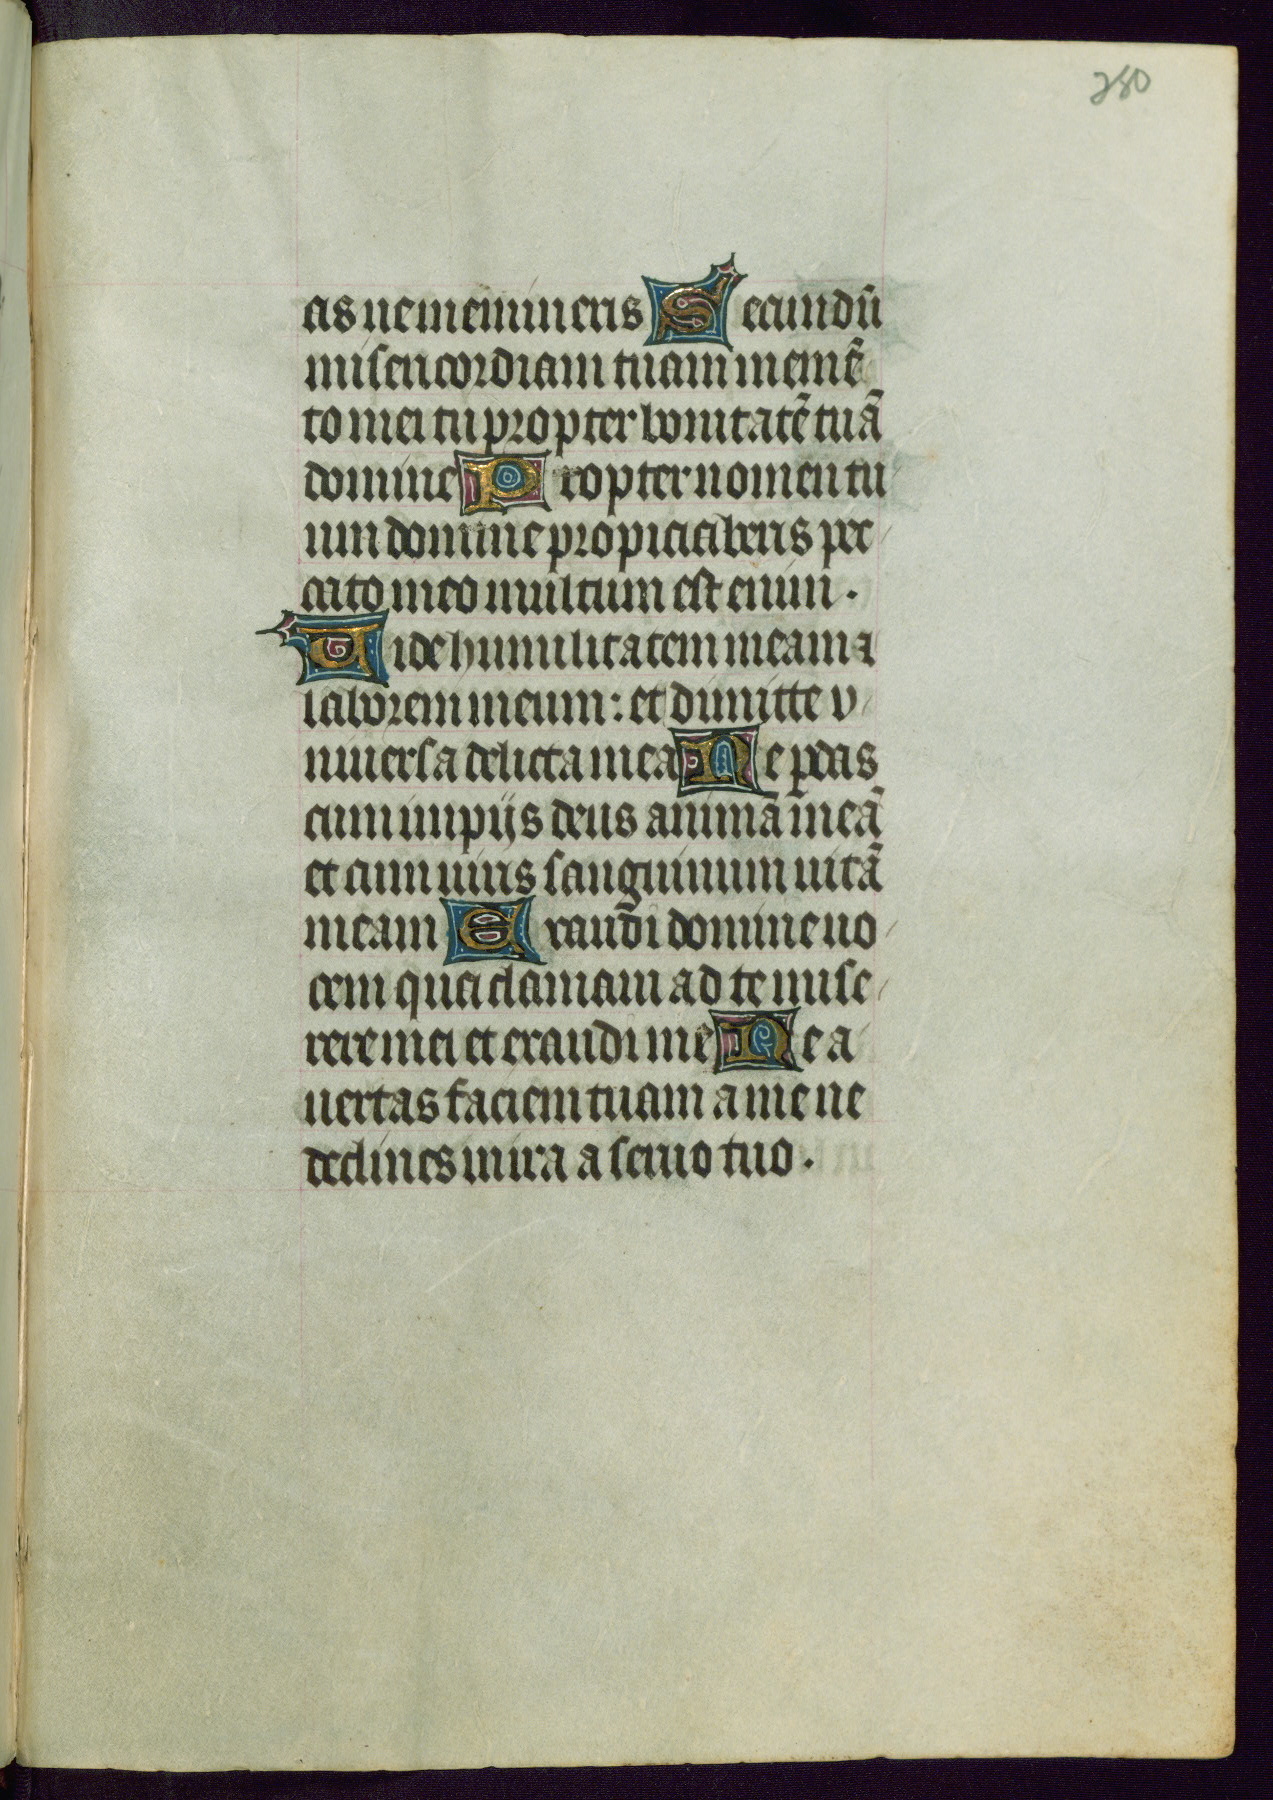 280
as ne memineris Secundū
misericordiam tuam memē
to mei tu propter bonitatē tuā
domine Propter nomen tu
um domine propiciaberis pec
cato meo multum est enim .
Vide humilitatem meam ⁊
laborem meum : et dimitte v
niuersa delicta mea Ne ꝑdas
cum impijs deus animā meā
et cum uiris sanguinum uitā
meam Exaudi domine uo
cem qua clamam ad te mise
rere mei et exaudi me Ne a
uertas faciem tuam a me ne
declines in ira a seruo tuo .